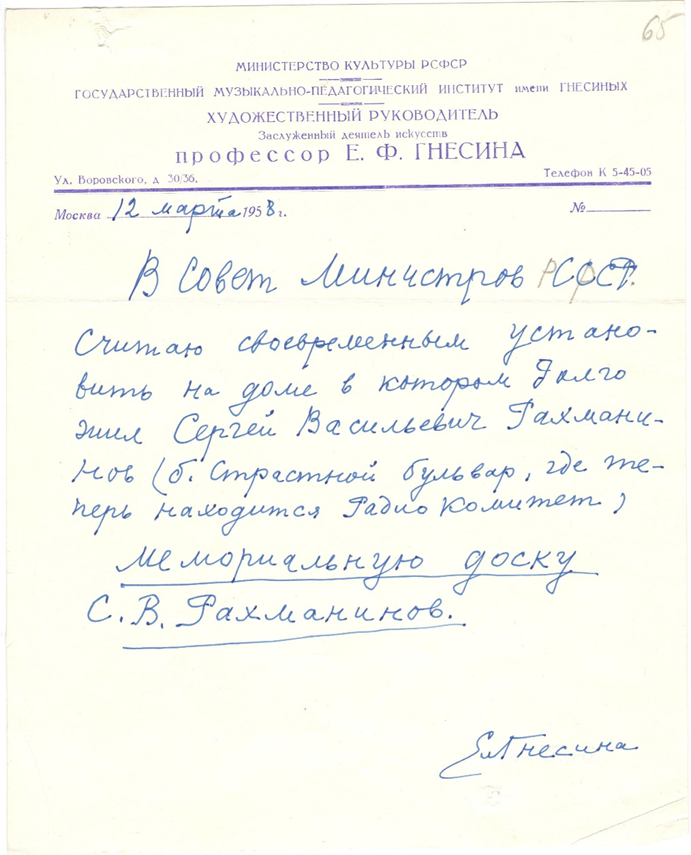 65
МИНИСТЕРСТВО КУЛЬТУРЫ РСФСР
ГОСУДАРСТВЕННЫЙ МУЗЫКАЛЬНО-ПЕДАГОГИЧЕСКИЙ ИНСТИТУТ имени ГНЕСИНЫХ
ХУДОЖЕСТВЕННЫЙ РУКОВОДИТЕЛЬ
Заслуженный деятель искусств
профессор Е. Ф. ГНЕСИНА
Ул. Воровского, д 30/36. Телефон К 5-45-05
Москва 12 марта 1958 г. №
В Совет Министров
Считаю своевременным устано-
вить на доме в котором долго
жил Сергей Васильевич Рахмани-
нов (б. Страстной бульвар, где те-
перь находится Радио Комитет)
Мемориальную доску
С. В. Рахманинов.
Ел Гнесина